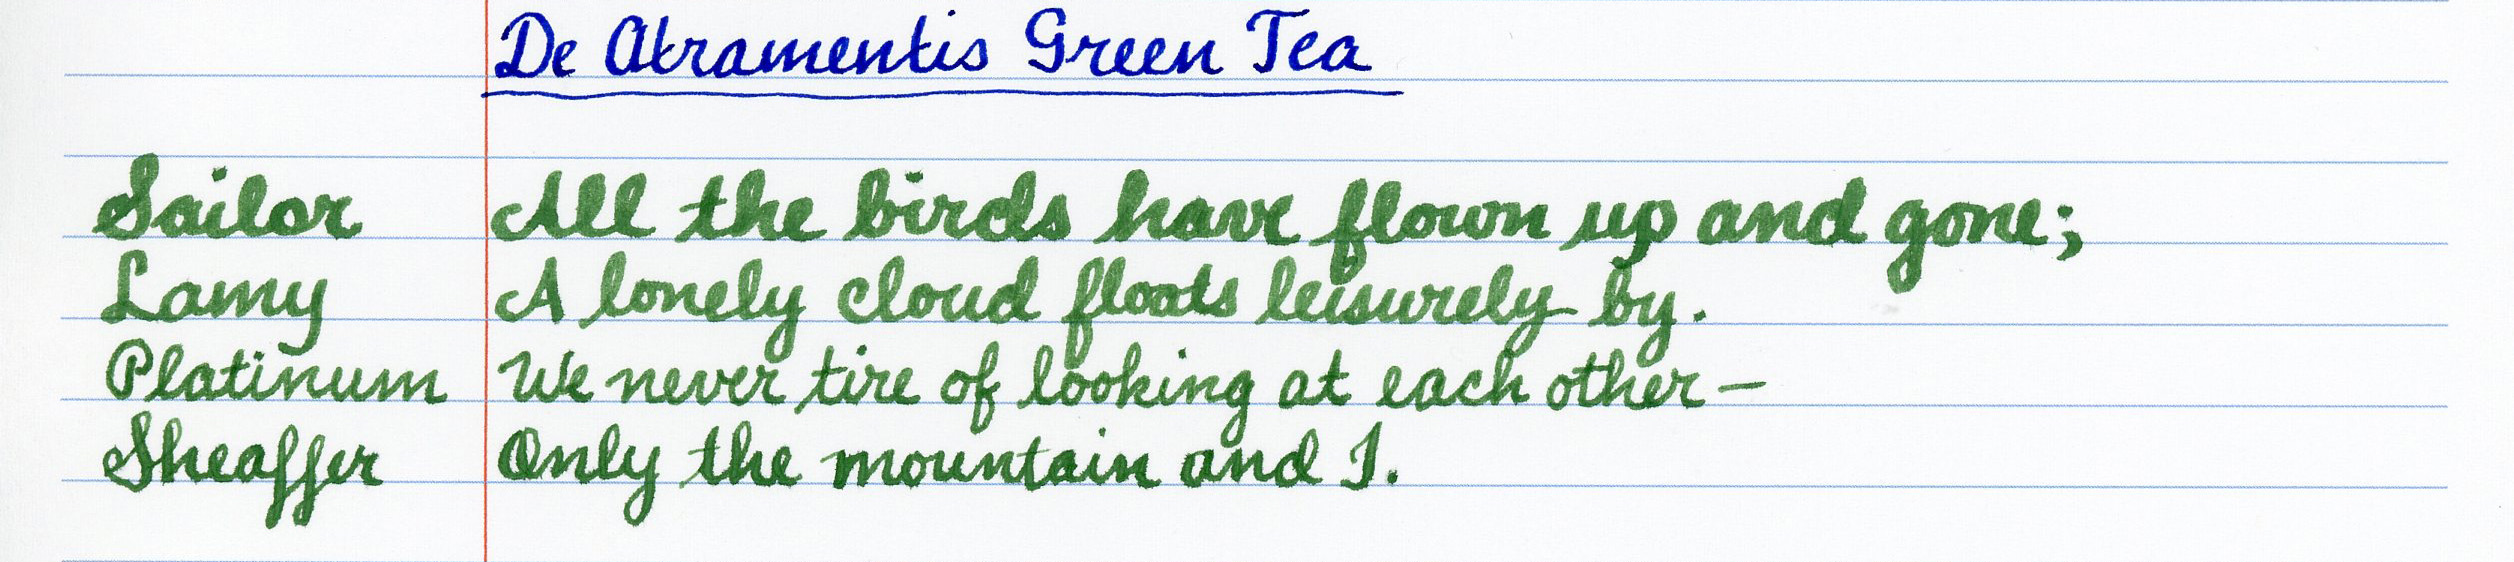 De Atramentis Green Tea
Sailor All the birds have flown up and gone;
Lamy A lonely cloud floats leisurely by.
Platinum We never tire of looking at each other—
Sheaffer Only the mountain and I.